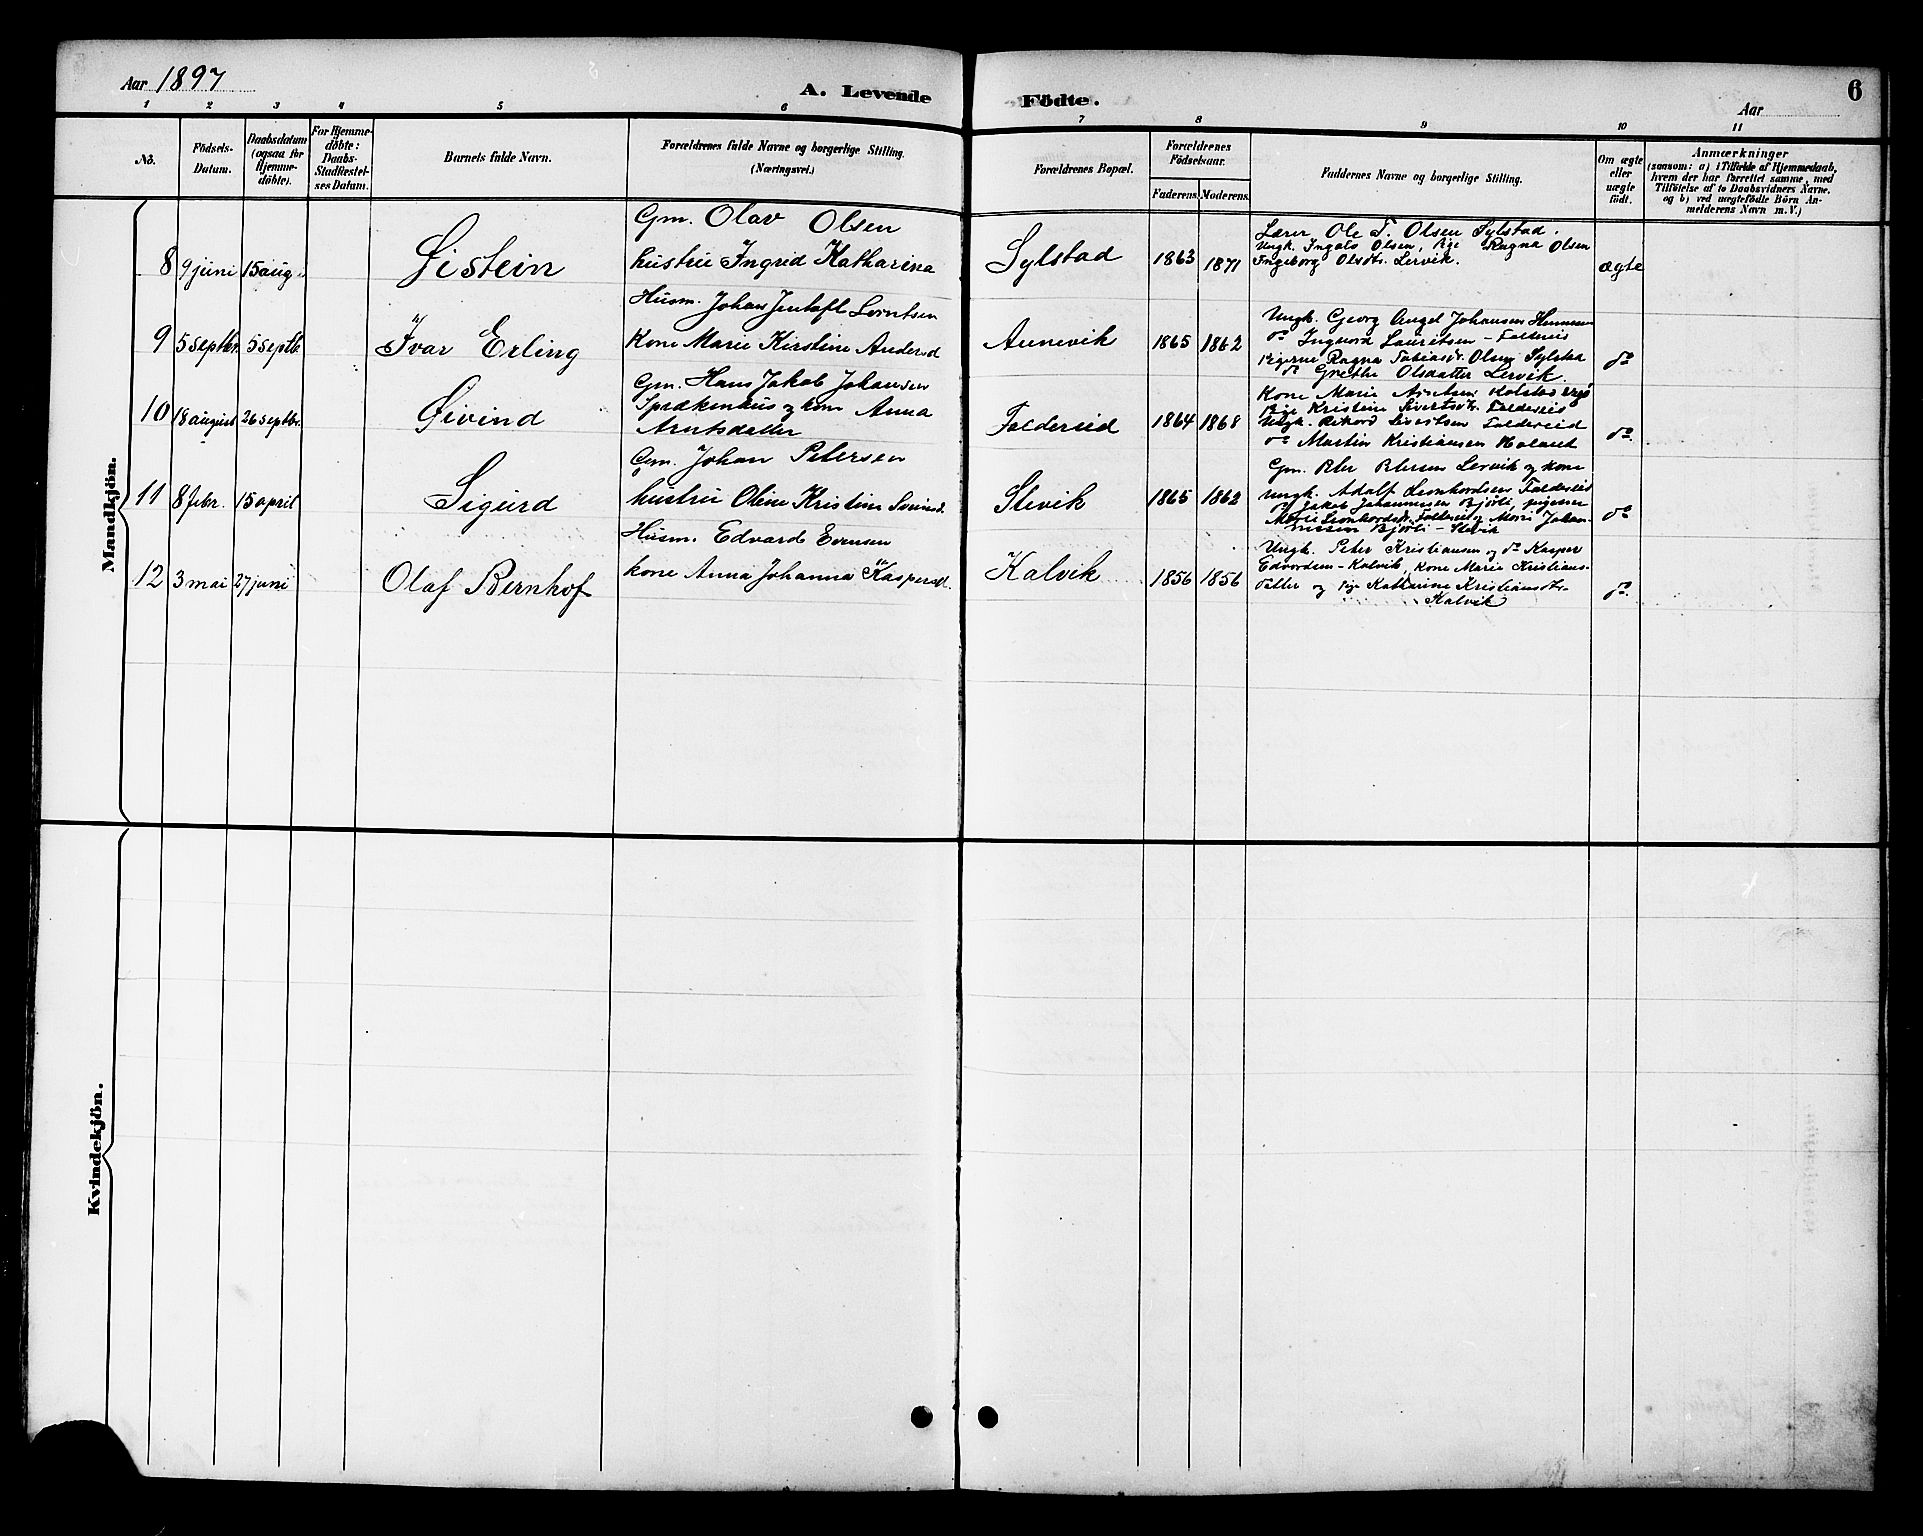 Aar 1897
A. Levende Födte.
Aar
6
1 2 3 4 5 6 7 8 9 10 11
No.
Födsels-
Datum.
Daabsdatum
(ogsaa for
Hjemme-
döbte).
For Hjemme-
döbte:
Daabs-
Stadfæstel-
ses Datum.
Barnets fulde Navn.
Forældrenes fulde Navne og borgerlige Stilling.
(Næringsvei.)
Forældrenes Bopæl.
Forældrenes
Födselsaar.
Faderens. Moderens.
Faddernes Navne og borgerlige Stilling.
Om ægte
eller
uægte
födt.
Anmærkninger
(saasom: a) i Tilfælde af Hjemmedaab,
hvem der har forrettet samme, med
Tilföielse af to Daabsvidners Navne.
og b) ved uægtefödte Börn An-
melderens Navn m.V.)
Mandkjön.
8 9 juni 15 aug. Øistein
Gm. Olav Olsen
hustru Ingrid Katharina
Sylstad 1863 1871
Lærer Ole T. Olsen Sylstad.
Ungk. Ingals Olsen, Pige Ragna Olsen
Ingeborg Olsdtr. Lervik.
ægte
9 5 septbr. 5 septb. Ivar Erling
Husm. Johan Jentoft Lorntsen
Kone Marie Kirstine Andersd
Aunevik 1865 1862
Ungk. Georg Angel Johansen
do Ingvord Lauritsen - Foldereid
Pigerne Ragna Tobiasdr. Olsen Sylstad
do Grethe Olsdatter Lervik.
do
10 18 august 26 septbr. Øivind
Gm. Hans Jakob Johansen
Sprækenhus og kone Anna
Arntsdatter
Foldereid 1864 1868
Kone Marie
Pige Kristine Sivertsdtr. Foldereid
Ungk. Rikard Sivertsen Foldereid
do Martin Kristiansen
do
11 8 febr. 15 april Sigurd
Gm. Johan Petersen
hustru Oline Kristine
Stevik 1865 1862
Gm. Peter Petersen Lervik og kone
Ungk. Adolf Leonhordsen Foldereid
do Jakob Johannessen Bjørli, pigerne
Marie Leonhordsdtr. Foldereid og Marie Johan-
nessen Bjørli - Stevik
do
12 3 mai 27 juni Olaf Bernhof
Husm. Edvard Evensen
kone Anna Johanna Kaspersd.
Kalvik 1856 1856
Ungk. Peter Kristiansen og do Kasper
Edvordsen - Kalvik, Kone Marie Kristians-
datter og pige Katharine Kristiansdtr.
Kalvik
do
Kvindekjön.